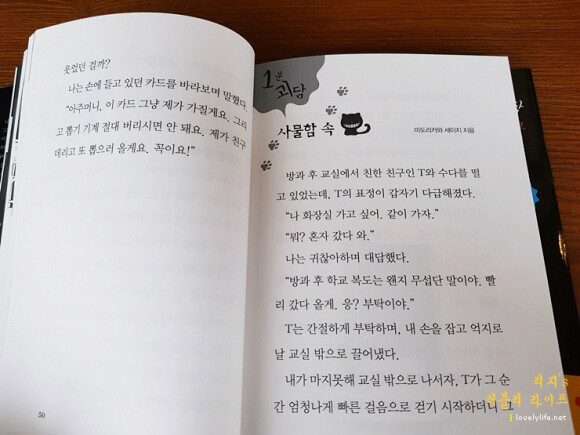 웃었던 걸까?
나는 손에 들고 있던 카드를 바라보며 말했다.
“아주머니, 이 카드 그냥 제가 가질게요. 그리
고 뽑기 기계 절대 버리시면 안 돼요. 제가 친구
데리고 또 뽑으러 올게요. 꼭이요!”
50
1분
괴담
사물함 속
미도리카와 세이지 지음
방과 후 교실에서 친한 친구인 T와 수다를 떨
고 있었는데, T의 표정이 갑자기 다급해졌다.
“나 화장실 가고 싶어. 같이 가자.”
“뭐? 혼자 갔다 와.”
나는 귀찮아하며 대답했다.
“방과 후 학교 복도는 왠지 무섭단 말이야. 빨
리 갔다 올게. 응? 부탁이야.”
T는 간절하게 부탁하며, 내 손을 잡고 억지로
날 교실 밖으로 끌어냈다.
내가 마지못해 교실 밖으로 나서자, T가 그 순
간 엄청나게 빠른 걸음으로 걷기 시작하더니 그
리지's
러블리 라이프
lovelylife.net